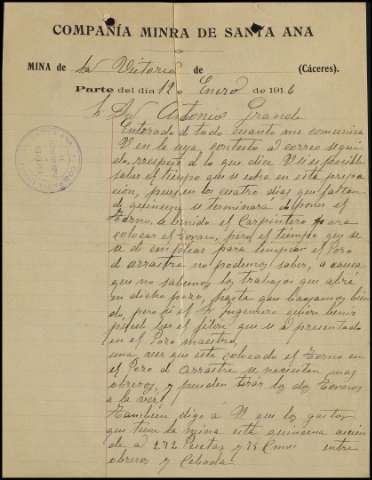 COMPAÑÍA MINRA DE SANTA ANA
MINA de La Victoria de (Cáceres).
Parte del día 12 de Enero de 1916
Sr Dn Antonio Granda
Enterado de todo cuanto me comunica
V en la suya, contesto a correo segui
do, rrespeto á lo que dice V si es posible
saber el tiempo que se echa en esta prepa
ción, pues en los cuatro dias que faltan
de quincena se terminará de poner el
Torno, a benido el Carpintero para
colocar el Torno, pero el tiempo que se
a de emplear para limpiar el Pozo
d arrastre no podemos saber, a causa
que no sabemos los trabajos que abrá
en dicho pozo, hasta que bayamos bien
do, pero si el Sr Ingeniero quiere benir
puede ber el filon que se a presentado
en el Pozo maestro,
una vez que esté colocado el Torno en
el Pozo d arrastre se necesitan mas
obreros, y pueden tirar los dos Tornos
a la vez.
Tambien digo á V que los gastos
que tiene la mina esta quincena acien
de a 272 Pesetas y 75 Cmos entre
obreros y Cebada.